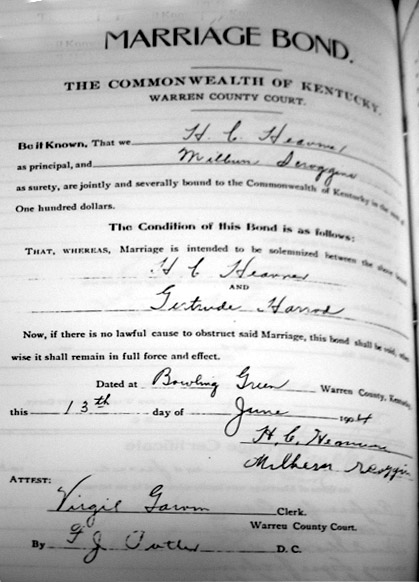 MARRIAGE BOND.
THE COMMONWEALTH OF KENTUCKY,
WARREN COUNTY COURT.
Be it Known, That we H. C. Heavner
as principal, and Milburn Scroggins
as surety, are jointly and severally bound to the Commonwealth of Kentucky in the sum of
One hundred dollars.
The Condition of this Bond is as follows:
THAT, WHEREAS, Marriage is intended to be solemnized between the above bound
H C Heavner
AND
Gertrude Harrod
Now, if there is no lawful cause to obstruct said Marriage, this bond shall be void, other-
wise it shall remain in full force and effect.
Dated at Bowling Green Warren County, Kentucky,
this 13th day of June 1904
H. C. Heavner
Scroggin
ATTEST:
Virgil Garvin Clerk.
Warren County Court.
By F J Potter D. C.